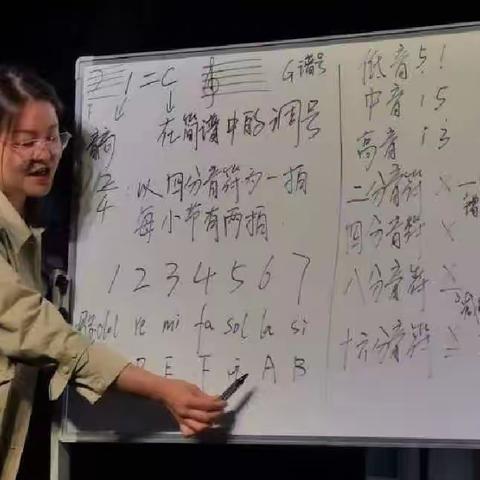 1 = C G谱号
在简谱中的调号
2/4 以四分音符为一拍
每小节有两拍
1 2 3 4 5 6 7
dol re mi fa sol la si
E F A B
低音 5 1
中音 1 5
高音 1 3
二分音符 X —
四分音符 X
八分音符 X
十六分音符 X